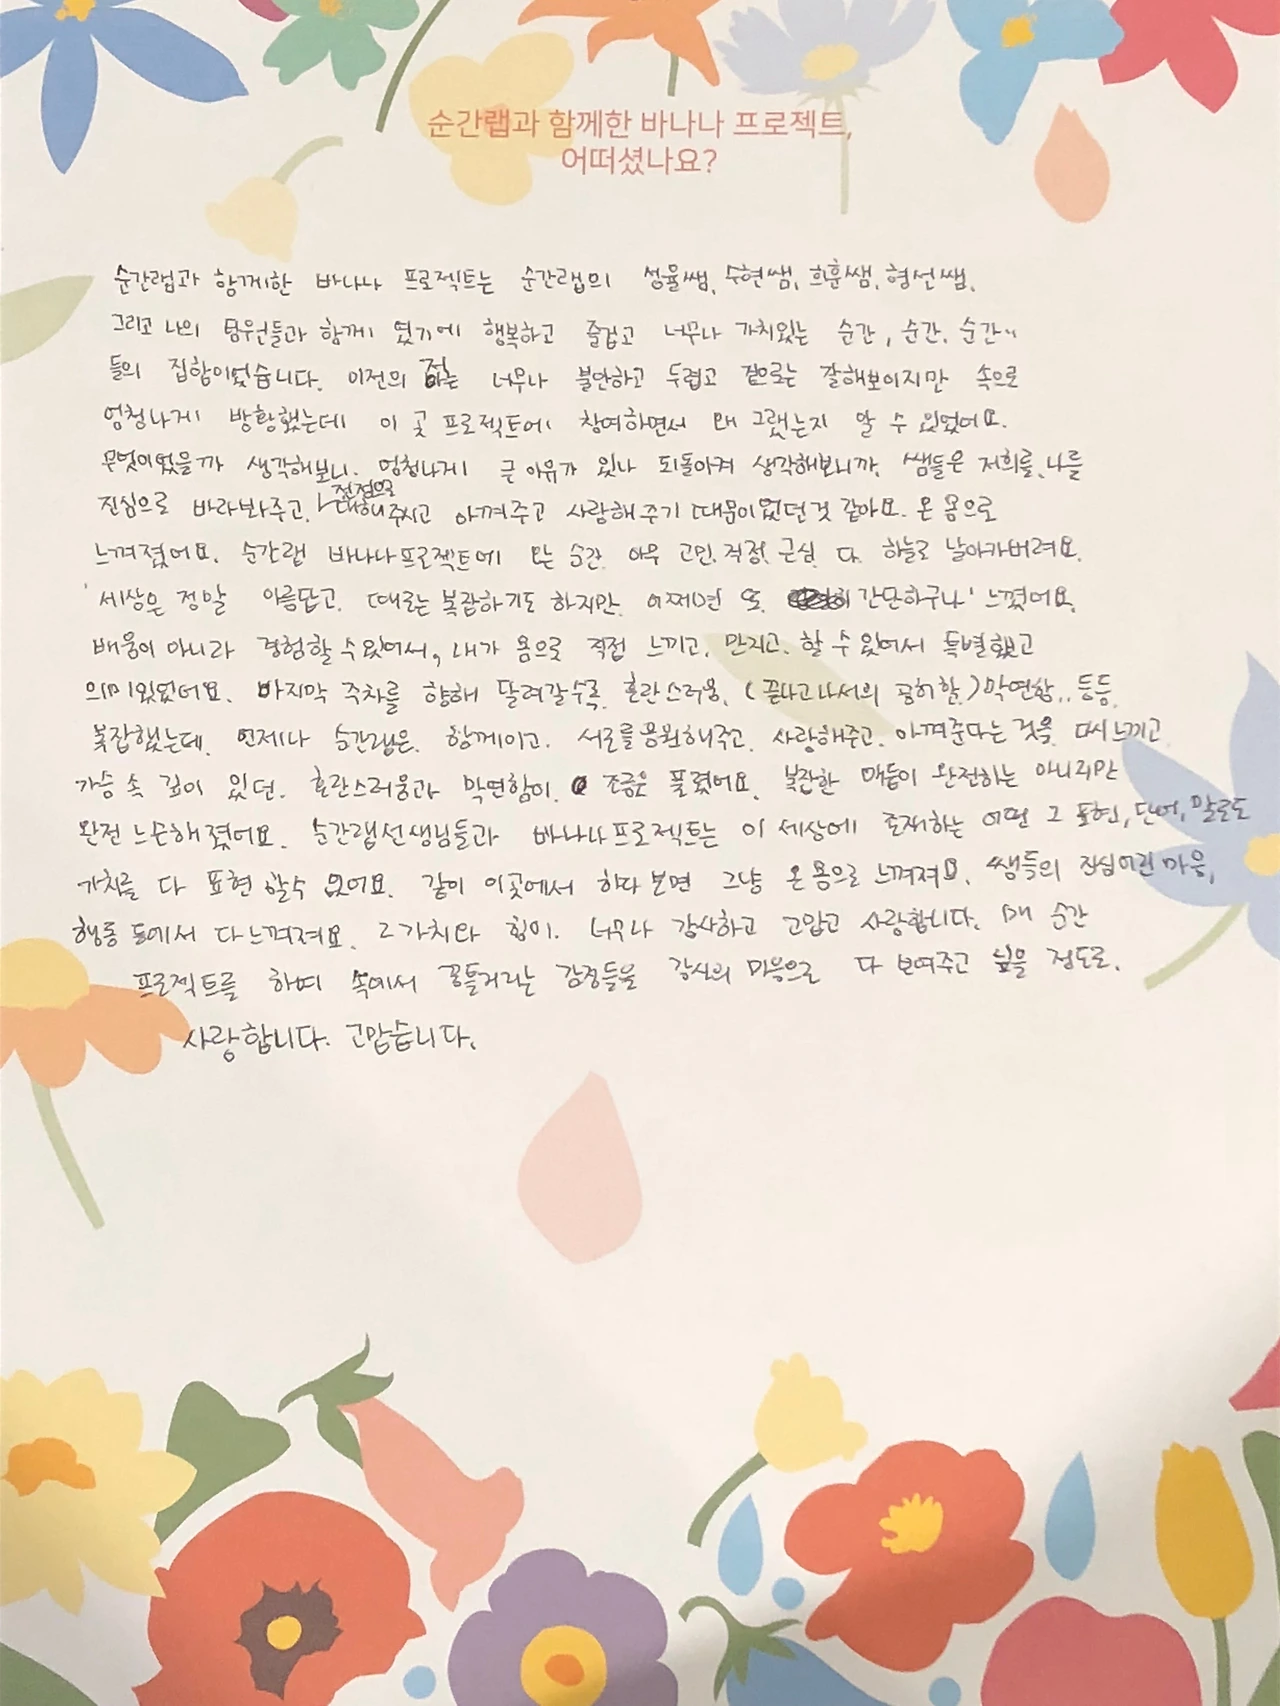 순간랩과 함께한 바나나 프로젝트,
어떠셨나요?
순간랩과 함께한 바나나 프로젝트는 순간랩의 성율쌤, 수현쌤, 희훈쌤, 형선쌤,
그리고 나의 팀원들과 함께 였기에 행복하고 즐겁고 너무나 가치있는 순간, 순간, 순간"
들의 집합이었습니다. 이전의 저는 너무나 불안하고 두렵고 겉으로는 잘해보이지만 속으로
엄청나게 방황했는데 이 곳 프로젝트에 참여하면서 왜 그랬는지 알 수 있었어요.
무엇이었을까 생각해보니, 엄청나게 큰 이유가 있나 되돌아켜 생각해보니까, 쌤들은 저희를, 나를
진심으로 바라봐주고, 진심으로 대해주시고 아껴주고 사랑해주기 때문이었던것 같아요. 온 몸으로
느껴졌어요. 순간랩 바나나프로젝트에 오는 순간, 아무 고민, 걱정, 근심, 다, 하늘로 날아가버려요.
'세상은 정말 아름답고, 때로는 복잡하기도 하지만, 어쩌면 또 간단하구나' 느꼈어요.
배움이 아니라 경험할 수 있어서, 내가 몸으로 직접 느끼고, 만지고, 할 수 있어서 특별했고
의미있었어요. 마지막 주차를 향해 달려갈수록, 혼란스러움, (끝나고나서의 공허함,) 막연함.. 등등,
복잡했는데, 언제나 순간랩은, 함께이고, 서로를 응원해주고, 사랑해주고, 아껴준다는 것을, 다시 느끼고
가슴 속 깊이 있던, 혼란스러움과 막연함이, 조금은 풀렸어요. 복잡한 매듭이 완전하는 아니지만
완전 느슨해졌어요. 순간랩선생님들과 바나나프로젝트는 이 세상에 존재하는 어떤 그 표현, 단어, 말로도
가치를 다 표현 할수 없어요. 같이 이곳에서 하다보면 그냥 온 몸으로 느껴져요. 쌤들의 진심어린 마음,
행동 등에서 다 느껴져요. 그 가치와 힘이. 너무나 감사하고 고맙고 사랑합니다. 매 순간
프로젝트를 하며 속에서 꿈틀거리는 감정들을 감사의 마음으로 다 보여주고 싶을 정도로.
사랑합니다. 고맙습니다.